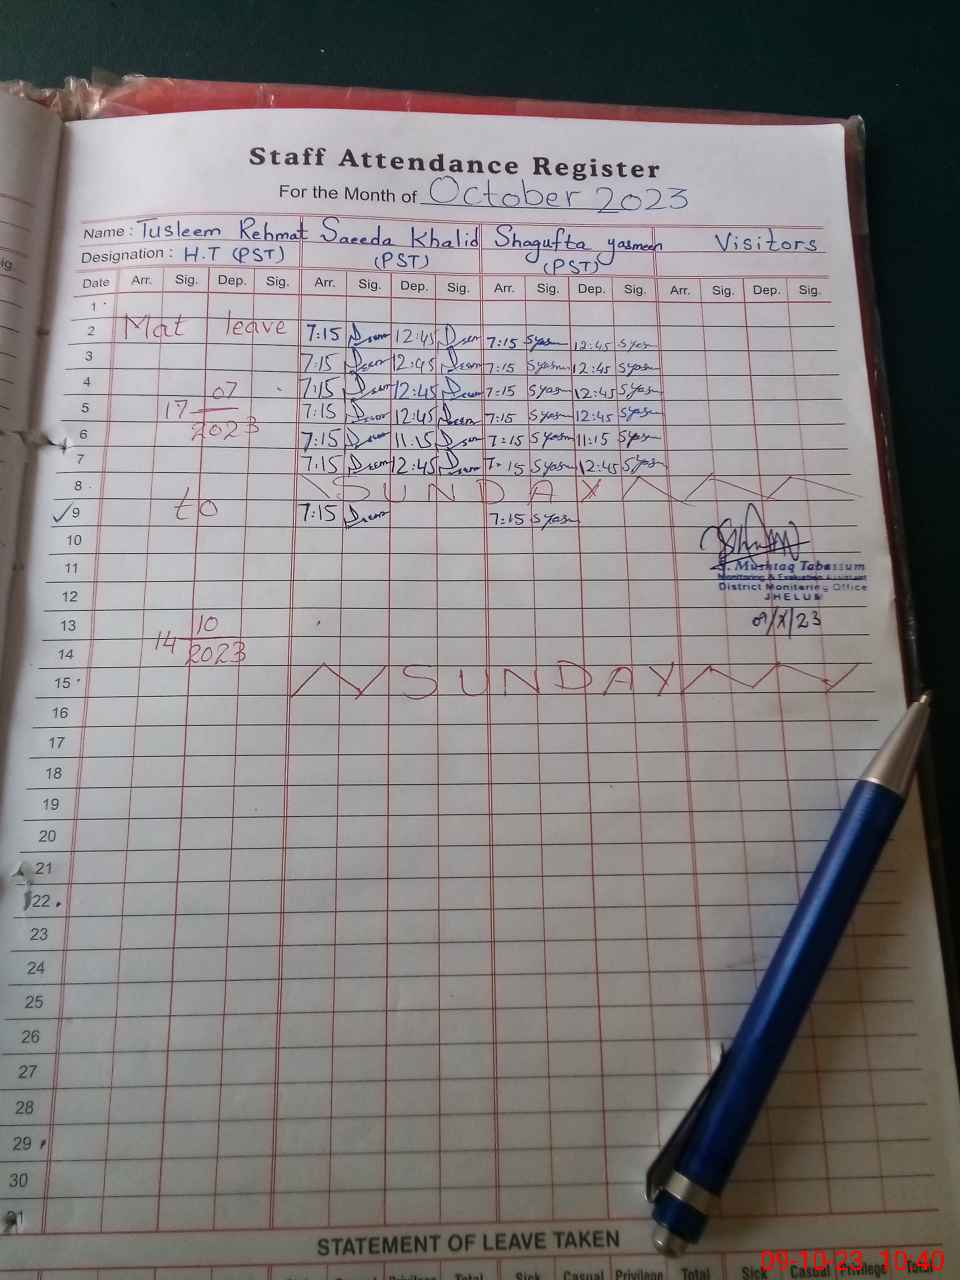 Staff Attendance Register
For the Month of October 2023
Name : Tusleem Rehmat Saeeda Khalid Shagufta yasmeen Visitors
Designation : H.T (PST) (PST) (PST)
Date Arr. Sig. Dep. Sig. Arr. Sig. Dep. Sig. Arr. Sig. Dep. Sig. Arr. Sig. Dep. Sig.
1
2 Mat leave 7:15 12:45 7:15 Syasm 12:45 Syasm
3 7:15 12:45 7:15 Syasm 12:45 Syasm
4 07 7:15 12:45 7:15 Syasm 12:45 Syasm
5 17 7:15 12:45 7:15 Syasm 12:45 Syasm
6 2023 7:15 11:15 7:15 Syasm 11:15 Syasm
7 7:15 12:45 7:15 Syasm 12:45 Syasm
8 SUNDAY
9 to 7:15 7:15 Syasm
10
11 Mushtaq Tabassum
Monitoring & Evaluation Assistant
12 District Monitering Office
JHELUM
13 10 /X/23
14 14 2023
15 SUNDAY
16
17
18
19
20
21
22
23
24
25
26
27
28
29
30
31
STATEMENT OF LEAVE TAKEN
Casual Privilege Total Sick Casual Privilege Total Sick Casual Privilege Total
09-10-23 10:40